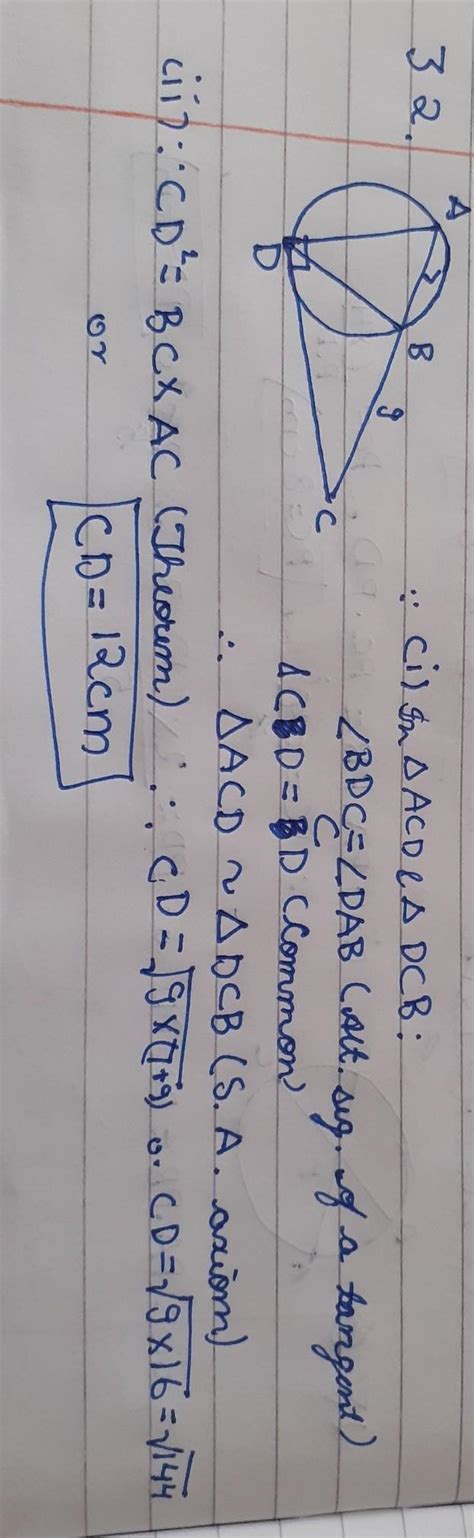 32.
A
7
B
9
D
C
∵ (i) In ΔACD & ΔDCB:
∠BDC = ∠DAB (Alt. seg. of a tangent)
CD = CD (Common)
∴ ΔACD ~ ΔDCB (S.A. axiom)
(ii) ∵ CD² = BC × AC (Theorem) ∴ CD = √9×(7+9) or CD = √9×16 = √144
or
CD = 12cm